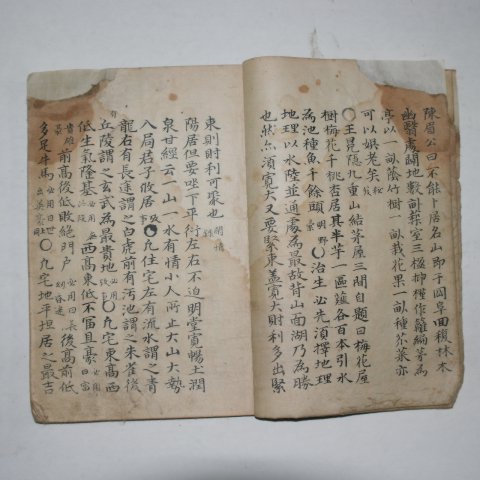 陳眉公曰不能卜居名山即于岡阜回複林木
幽翳處闢地數畝築室三楹揷槿作籬編茅為
亭以一畝蔭竹樹一畝栽花果一畝種芥菜亦
可以娛老矣
○王冕隱九重山結茅屋三間自題曰梅花屋
樹梅花千桃杏居其半芋一區薤各百本引水
為池種魚千餘頭○治生必先須擇地理
地理以水陸並通處為最故背山面湖乃為勝
也然亦須寛大又要緊束盖寛大財利多出緊
東則財利可聚也
陽居但要坐下平衍左右不迫明堂寛暢土潤
泉甘經云一山一水有情小人所止大山大勢
入局君子攸居○凡住宅左有流水謂之青
龍右有長途謂之白虎前有汚池謂之朱雀後
丘陵謂之玄武為最貴地○凡宅東高西
低生氣隆基西高東低不富且豪
前高後低敗絕門戶後高前低
多足牛馬○凡宅地平坦居之最吉